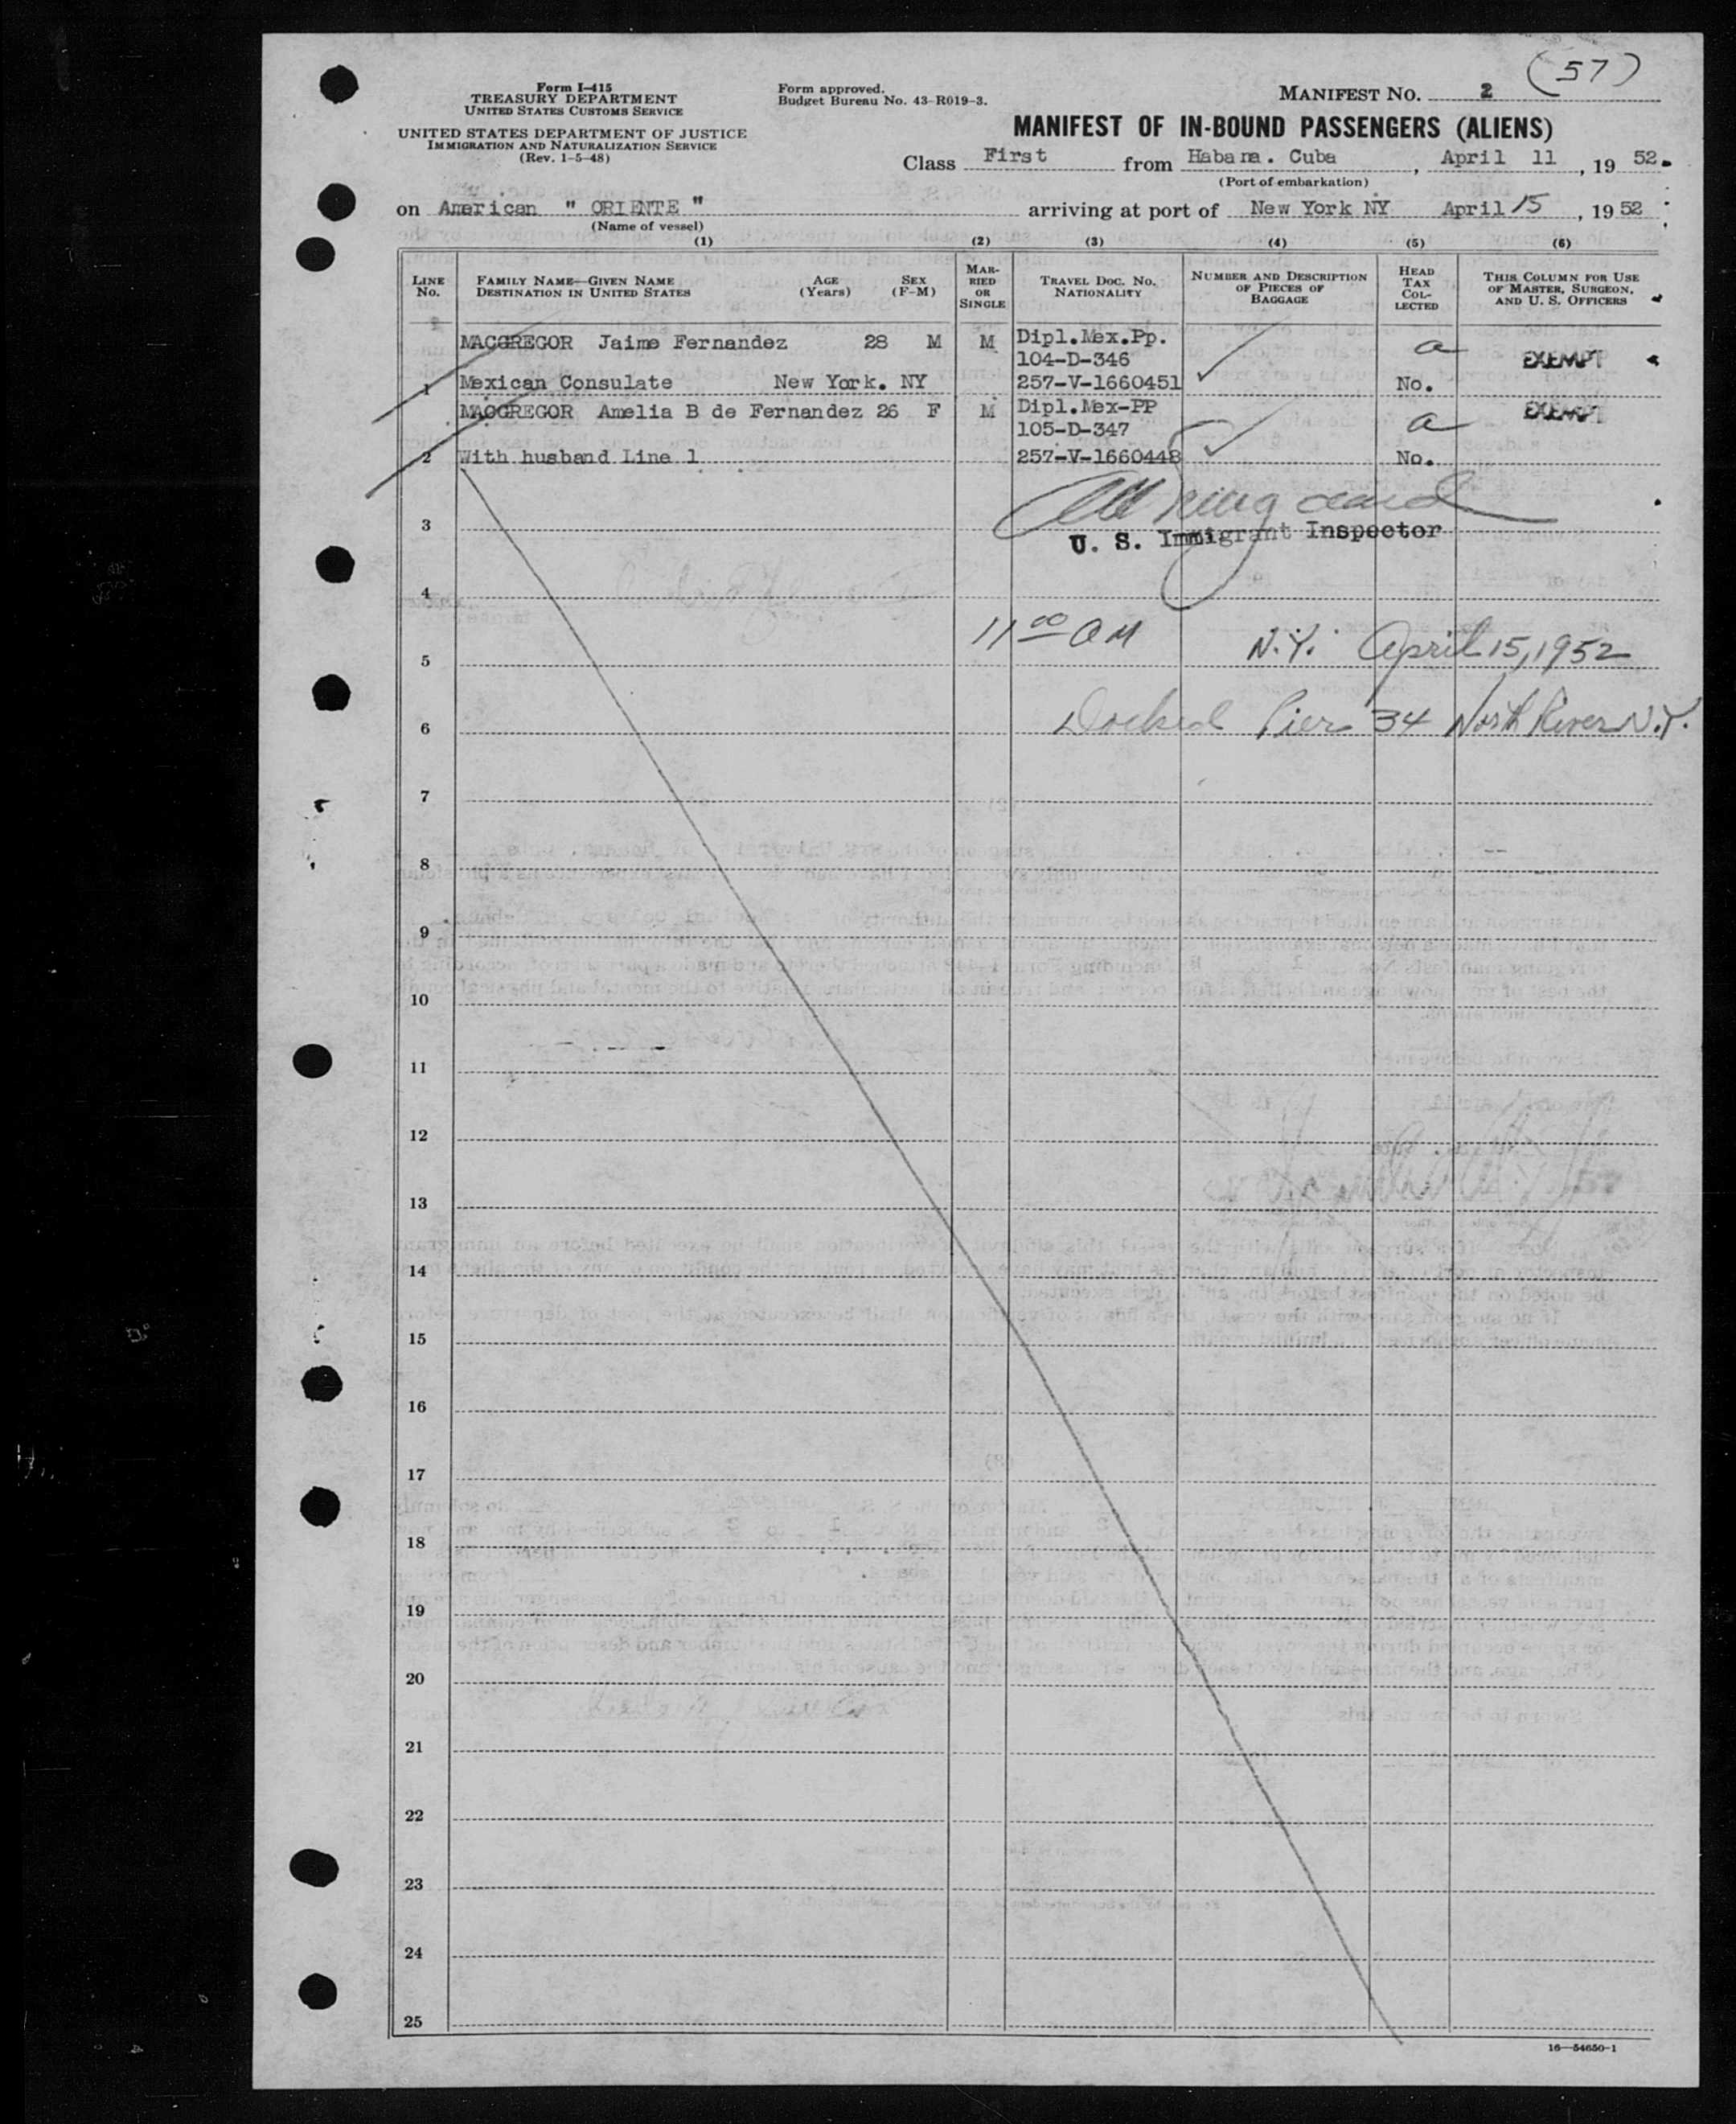 (57)
Form I-415
TREASURY DEPARTMENT
UNITED STATES CUSTOMS SERVICE
UNITED STATES DEPARTMENT OF JUSTICE
IMMIGRATION AND NATURALIZATION SERVICE
(Rev. 1-5-48)
Form approved.
Budget Bureau No. 43-R019-3.
MANIFEST NO. 2
MANIFEST OF IN-BOUND PASSENGERS (ALIENS)
Class First from Habana. Cuba, April 11, 19 52.
(Port of embarkation)
on American " ORIENTE " arriving at port of New York NY April 15, 19 52
(Name of vessel)
(1) (2) (3) (4) (5) (6)
LINE No.
FAMILY NAME—GIVEN NAME
DESTINATION IN UNITED STATES
AGE
(Years)
SEX
(F-M)
MAR-
RIED
OR
SINGLE
TRAVEL DOC. NO.
NATIONALITY
NUMBER AND DESCRIPTION
OF PIECES OF
BAGGAGE
HEAD
TAX
COL-
LECTED
THIS COLUMN FOR USE
OF MASTER, SURGEON,
AND U. S. OFFICERS
MACGREGOR Jaime Fernandez 28 M M Dipl.Mex.Pp.
104-D-346 a EXEMPT
1 Mexican Consulate New York. NY 257-V-1660451 No.
MACGREGOR Amelia B de Fernandez 26 F M Dipl.Mex-PP EXEMPT
105-D-347 a
2 With husband Line 1 257-V-1660448 No.
3
U. S. Immigrant Inspector
4
11 00 AM N.Y. April 15, 1952
5
Docked Pier 34 North River N.Y.
6
7
8
9
10
11
12
13
14
15
16
17
18
19
20
21
22
23
24
25
16—54650-1